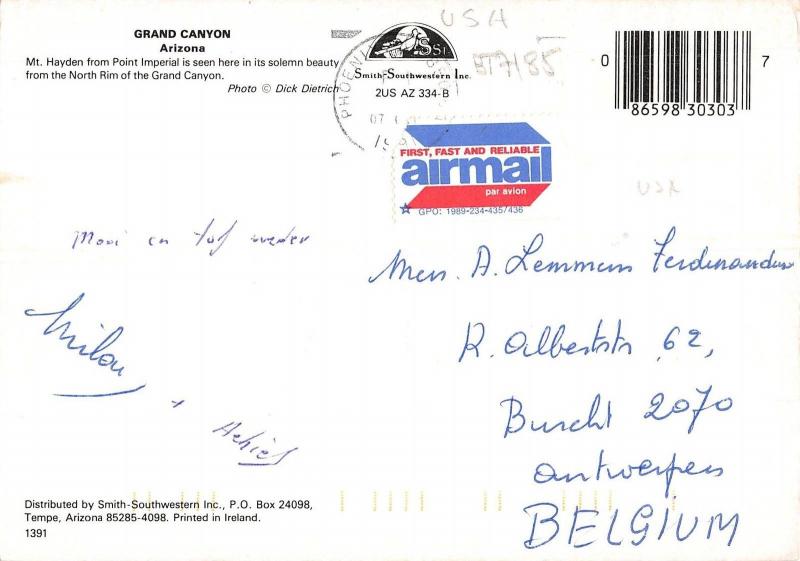 GRAND CANYON
Arizona
Mt. Hayden from Point Imperial is seen here in its solemn beauty
from the North Rim of the Grand Canyon.
Photo © Dick Dietrich
SSI
Smith-Southwestern Inc.
2US AZ 334-B
USA
BT7/85
PHOENI
07
0 7
86598 30303
FIRST, FAST AND RELIABLE
airmail
par avion
GPO: 1989-234-4357/436
USA
Mooi en tof weder
Milou
+
Achiel
Men. A. Lemmens Ferdinandus
K. Albertstr 62,
Burcht 2070
Antwerpen
BELGIUM
Distributed by Smith-Southwestern Inc., P.O. Box 24098,
Tempe, Arizona 85285-4098. Printed in Ireland.
1391